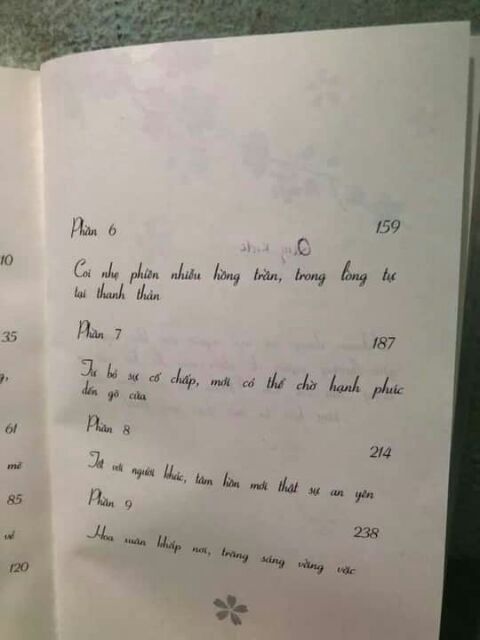 10
35
g,
61
mẽ
85
về
120
Phần 6 159
Coi nhẹ phiền nhiễu hồng trần, trong lòng tự
tại thanh thản
Phần 7 187
Từ bỏ sự cố chấp, mới có thể chờ hạnh phúc
đến gõ cửa
Phần 8 214
Tốt với người khác, tâm hồn mới thật sự an yên
Phần 9 238
Hoa xuân khắp nơi, trăng sáng vằng vặc